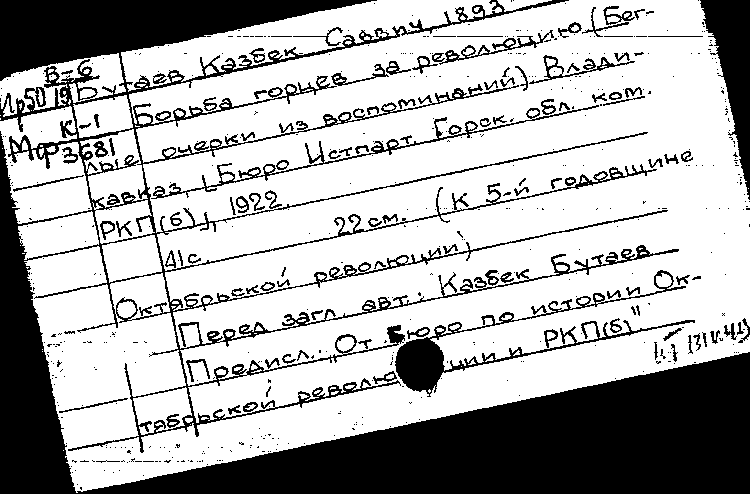 В=6
Бутаев, Казбек Саввич, 1893
Пр50 19
К-1
Мф 3681
Борьба горцев за революцию (Бег-
лые очерки из воспоминаний). Влади-
кавказ, [Бюро Истпарт. Горск. обл. ком.
РКП(б)], 1922.
41с. 22 см. (К 5-й годовщине
Октябрьской революции)
Перед загл. авт.: Казбек Бутаев
Предисл.: „От Бюро по истории Ок-
тябрьской револю ции и РКП(б)"